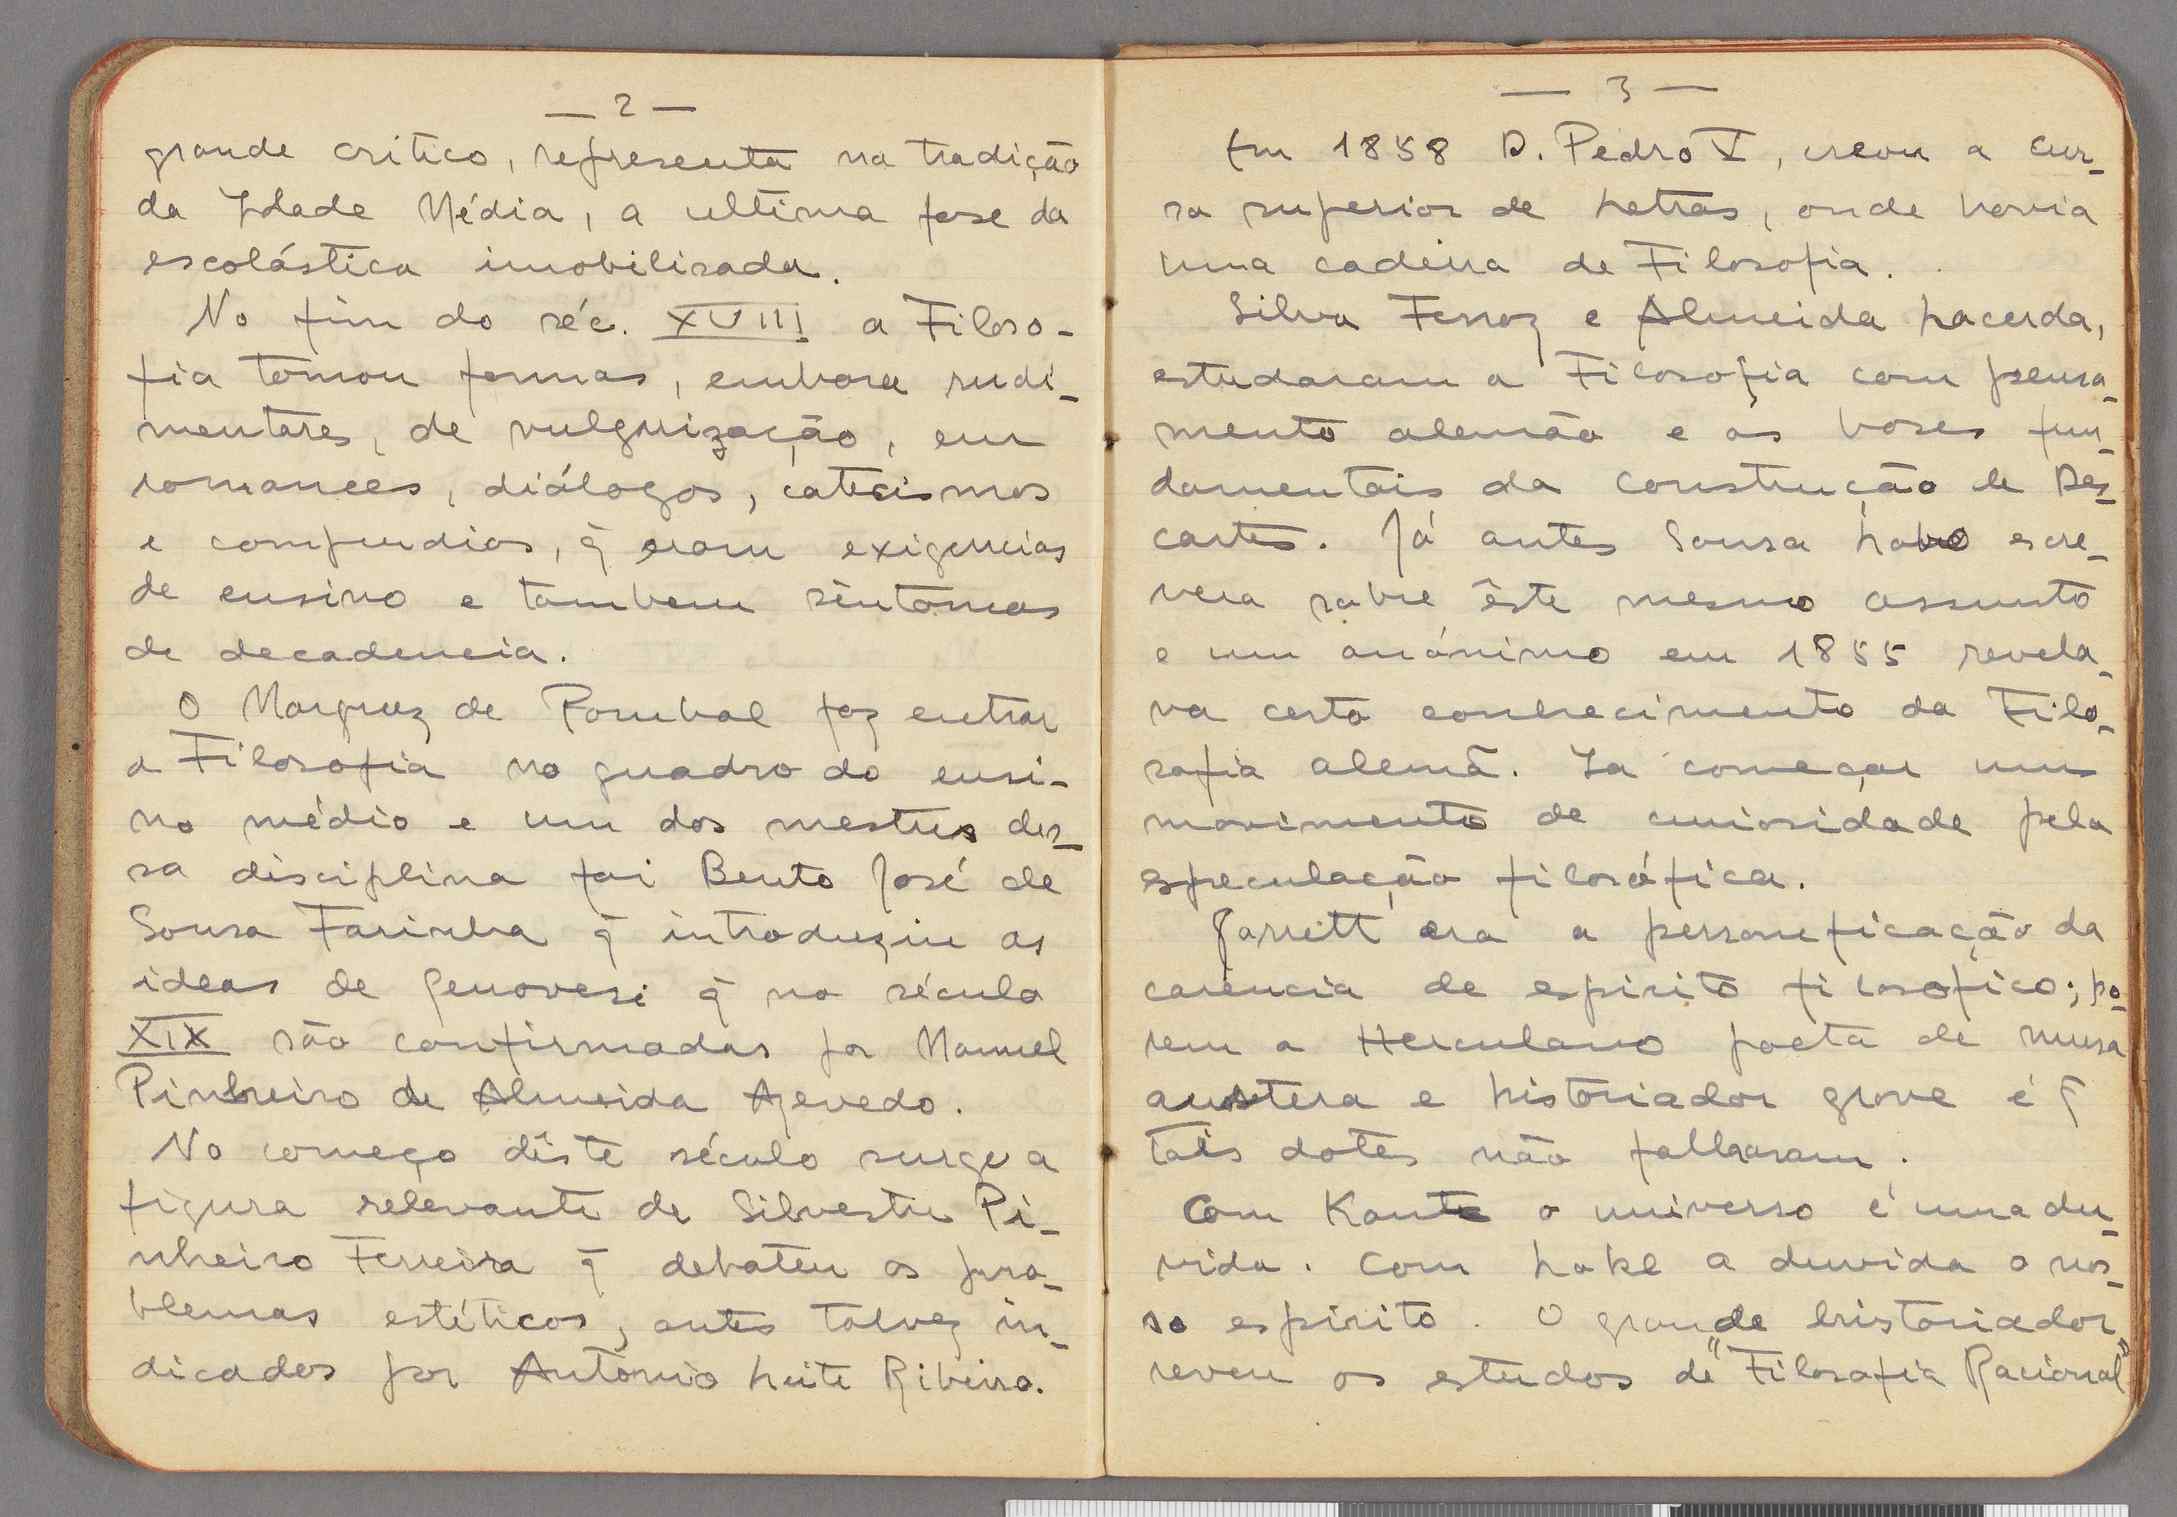 — 2 —
grande critico, representa na tradição
da Idade Média, a ultima fase da
escolástica imobilisada.
No fim do séc. XVIII a Filoso-
fia tomou formas, embora rudi-
mentares, de vulgarização, em
romances, diálogos, catecismos
e compendios, q̃ eram exigencias
de ensino e tambem sintomas
de decadencia.
O Marquez de Pombal fez entrar
a Filosofia no quadro do ensi-
no médio e um dos mestres des-
sa disciplina foi Bento José de
Sousa Farinha q̃ introduziu as
ideas de Genovesi q̃ no século
XIX são confirmadas por Manuel
Pinheiro de Almeida Azevedo.
No começo dêste século surge a
figura relevante de Silvestre Pi-
nheiro Ferreira q̃ debateu os pro-
blemas estéticos, antes talvez in-
dicados por Antonio Leite Ribeiro.
— 3 —
Em 1858 D. Pedro V, creou o cur-
so superior de Letras, onde havia
uma cadeira de Filosofia.
Silva Ferraz e Almeida Lacerda,
estudaram a Filosofia com pensa-
mento alemão e as bases fun-
damentais da construção de Des-
cartes. Já antes Sousa Lobo escre-
vera sobre êste mesmo assunto
e um anónimo em 1855 revela-
va certo conhecimento da Filo-
sofia alemã. Ia começar um
movimento de curiosidade pela
especulação filosófica.
Garrett era a personificação da
carência de espirito filosofico; po-
rem a Herculano poeta de musa
austera e historiador grave é q̃
tais dotes não falharam.
Com Kant o universo é uma du-
vida. Com Loke a duvida o nos-
so espirito. O grande historiador
reveu os estudos de "Filosofia Racional"